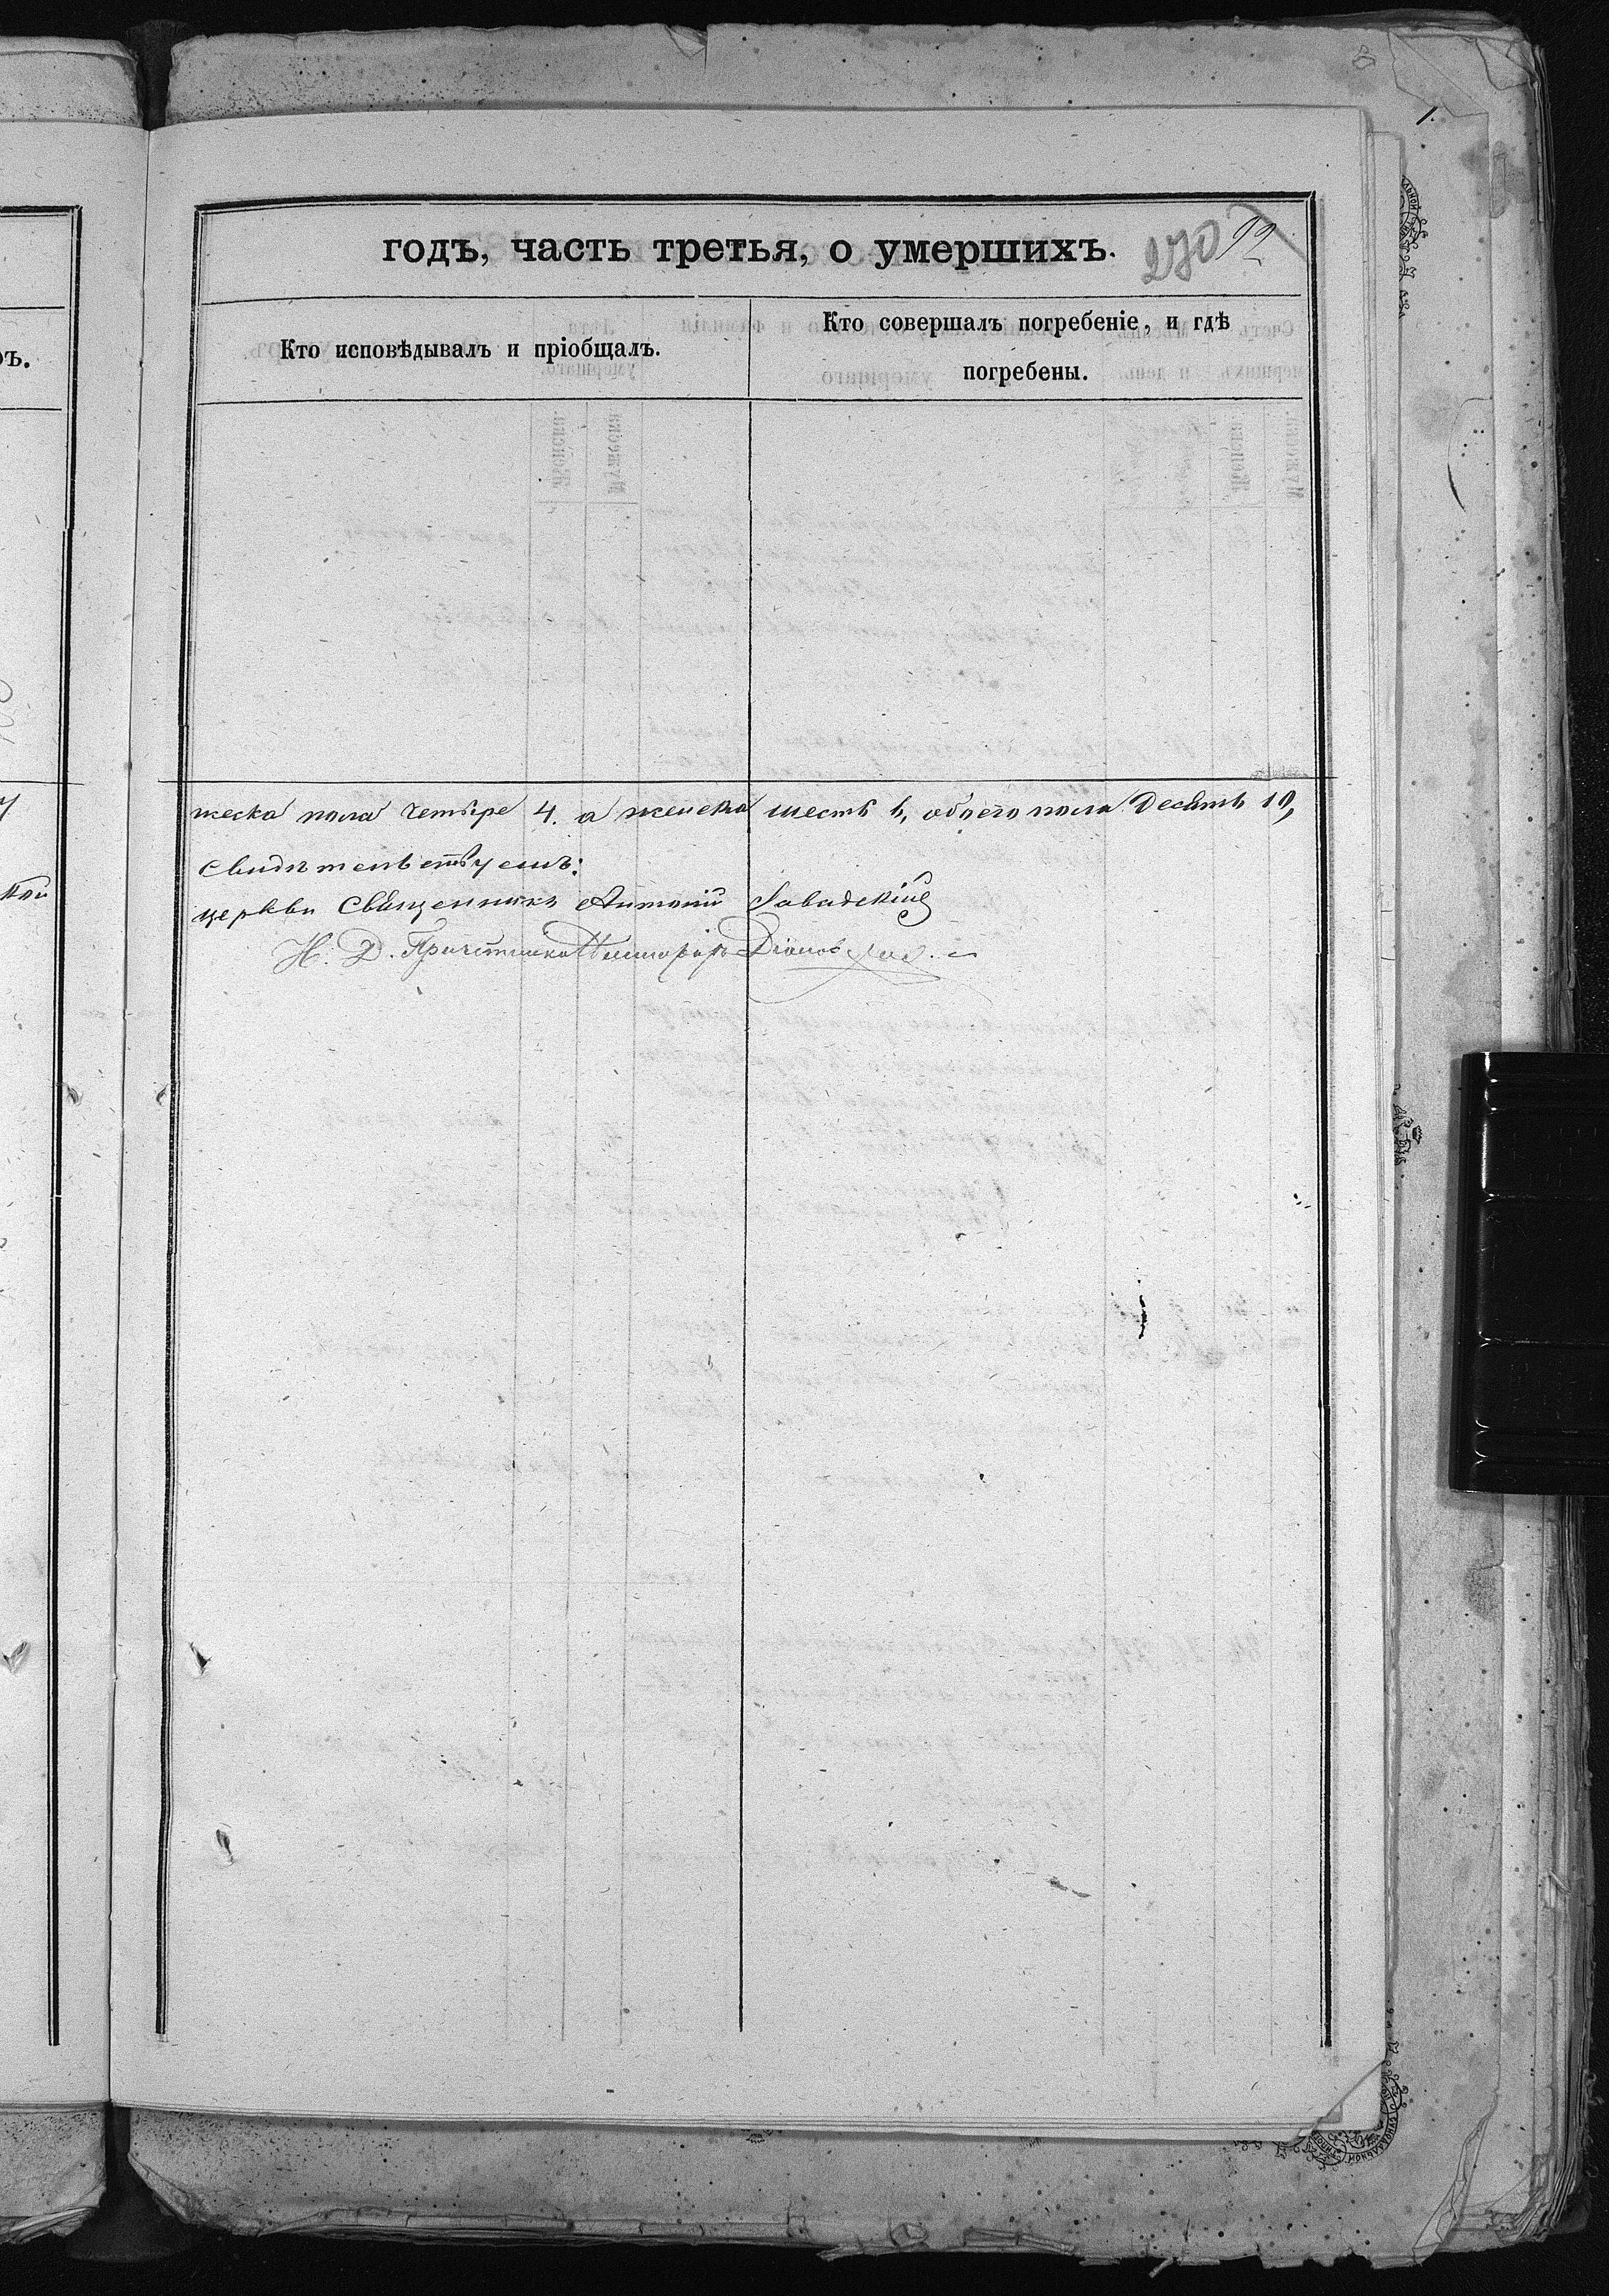 годъ, часть третья, о умершихъ.
270 92
Кто исповѣдывалъ и пріобщалъ.
Кто совершалъ погребеніе, и гдѣ
погребены.
жеска пола четыре 4. а женска шесть 6, обоего пола десять 10,
свидѣтельствуемъ:
церкви Священникъ Антоній Завадскій
И. Д. Причетника